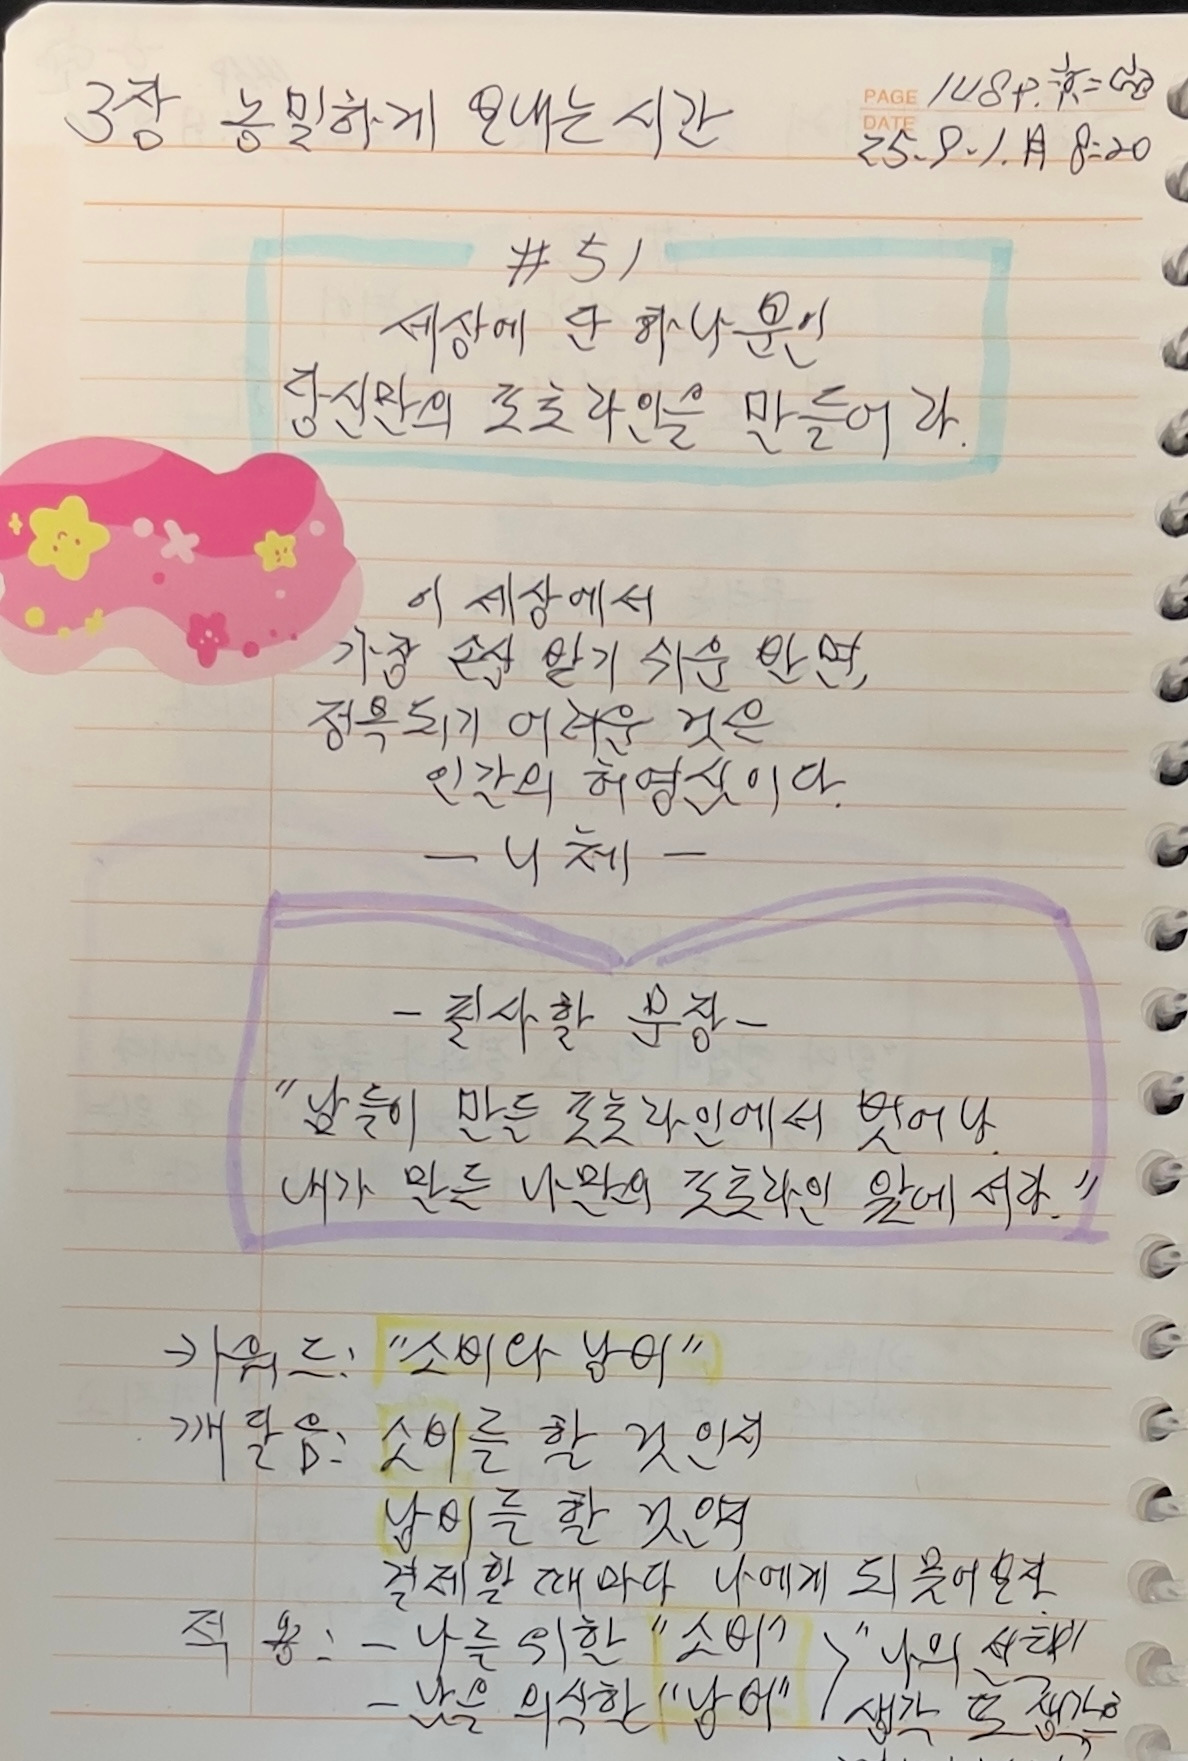 3장 농밀하게 보내는 시간
PAGE 148p.
DATE 25.9.1.月 8:20
#51
세상에 단 하나뿐인
당신만의 포토라인을 만들어라.
이 세상에서
가장 손상 입기 쉬운 반면,
정복되기 어려운 것은
인간의 허영심이다.
— 니체 —
- 필사할 문장 -
"남들이 만든 포토라인에서 벗어나
내가 만든 나만의 포토라인 앞에 서라."
→키워드: "소비와 낭비"
깨달음: 소비를 할 것인지
낭비를 할 것인지
결제할 때마다 나에게 되물어보자.
적용: - 나를 위한 "소비" "나의 선택이
- 남을 의식한 "낭비" 생각 또 생각